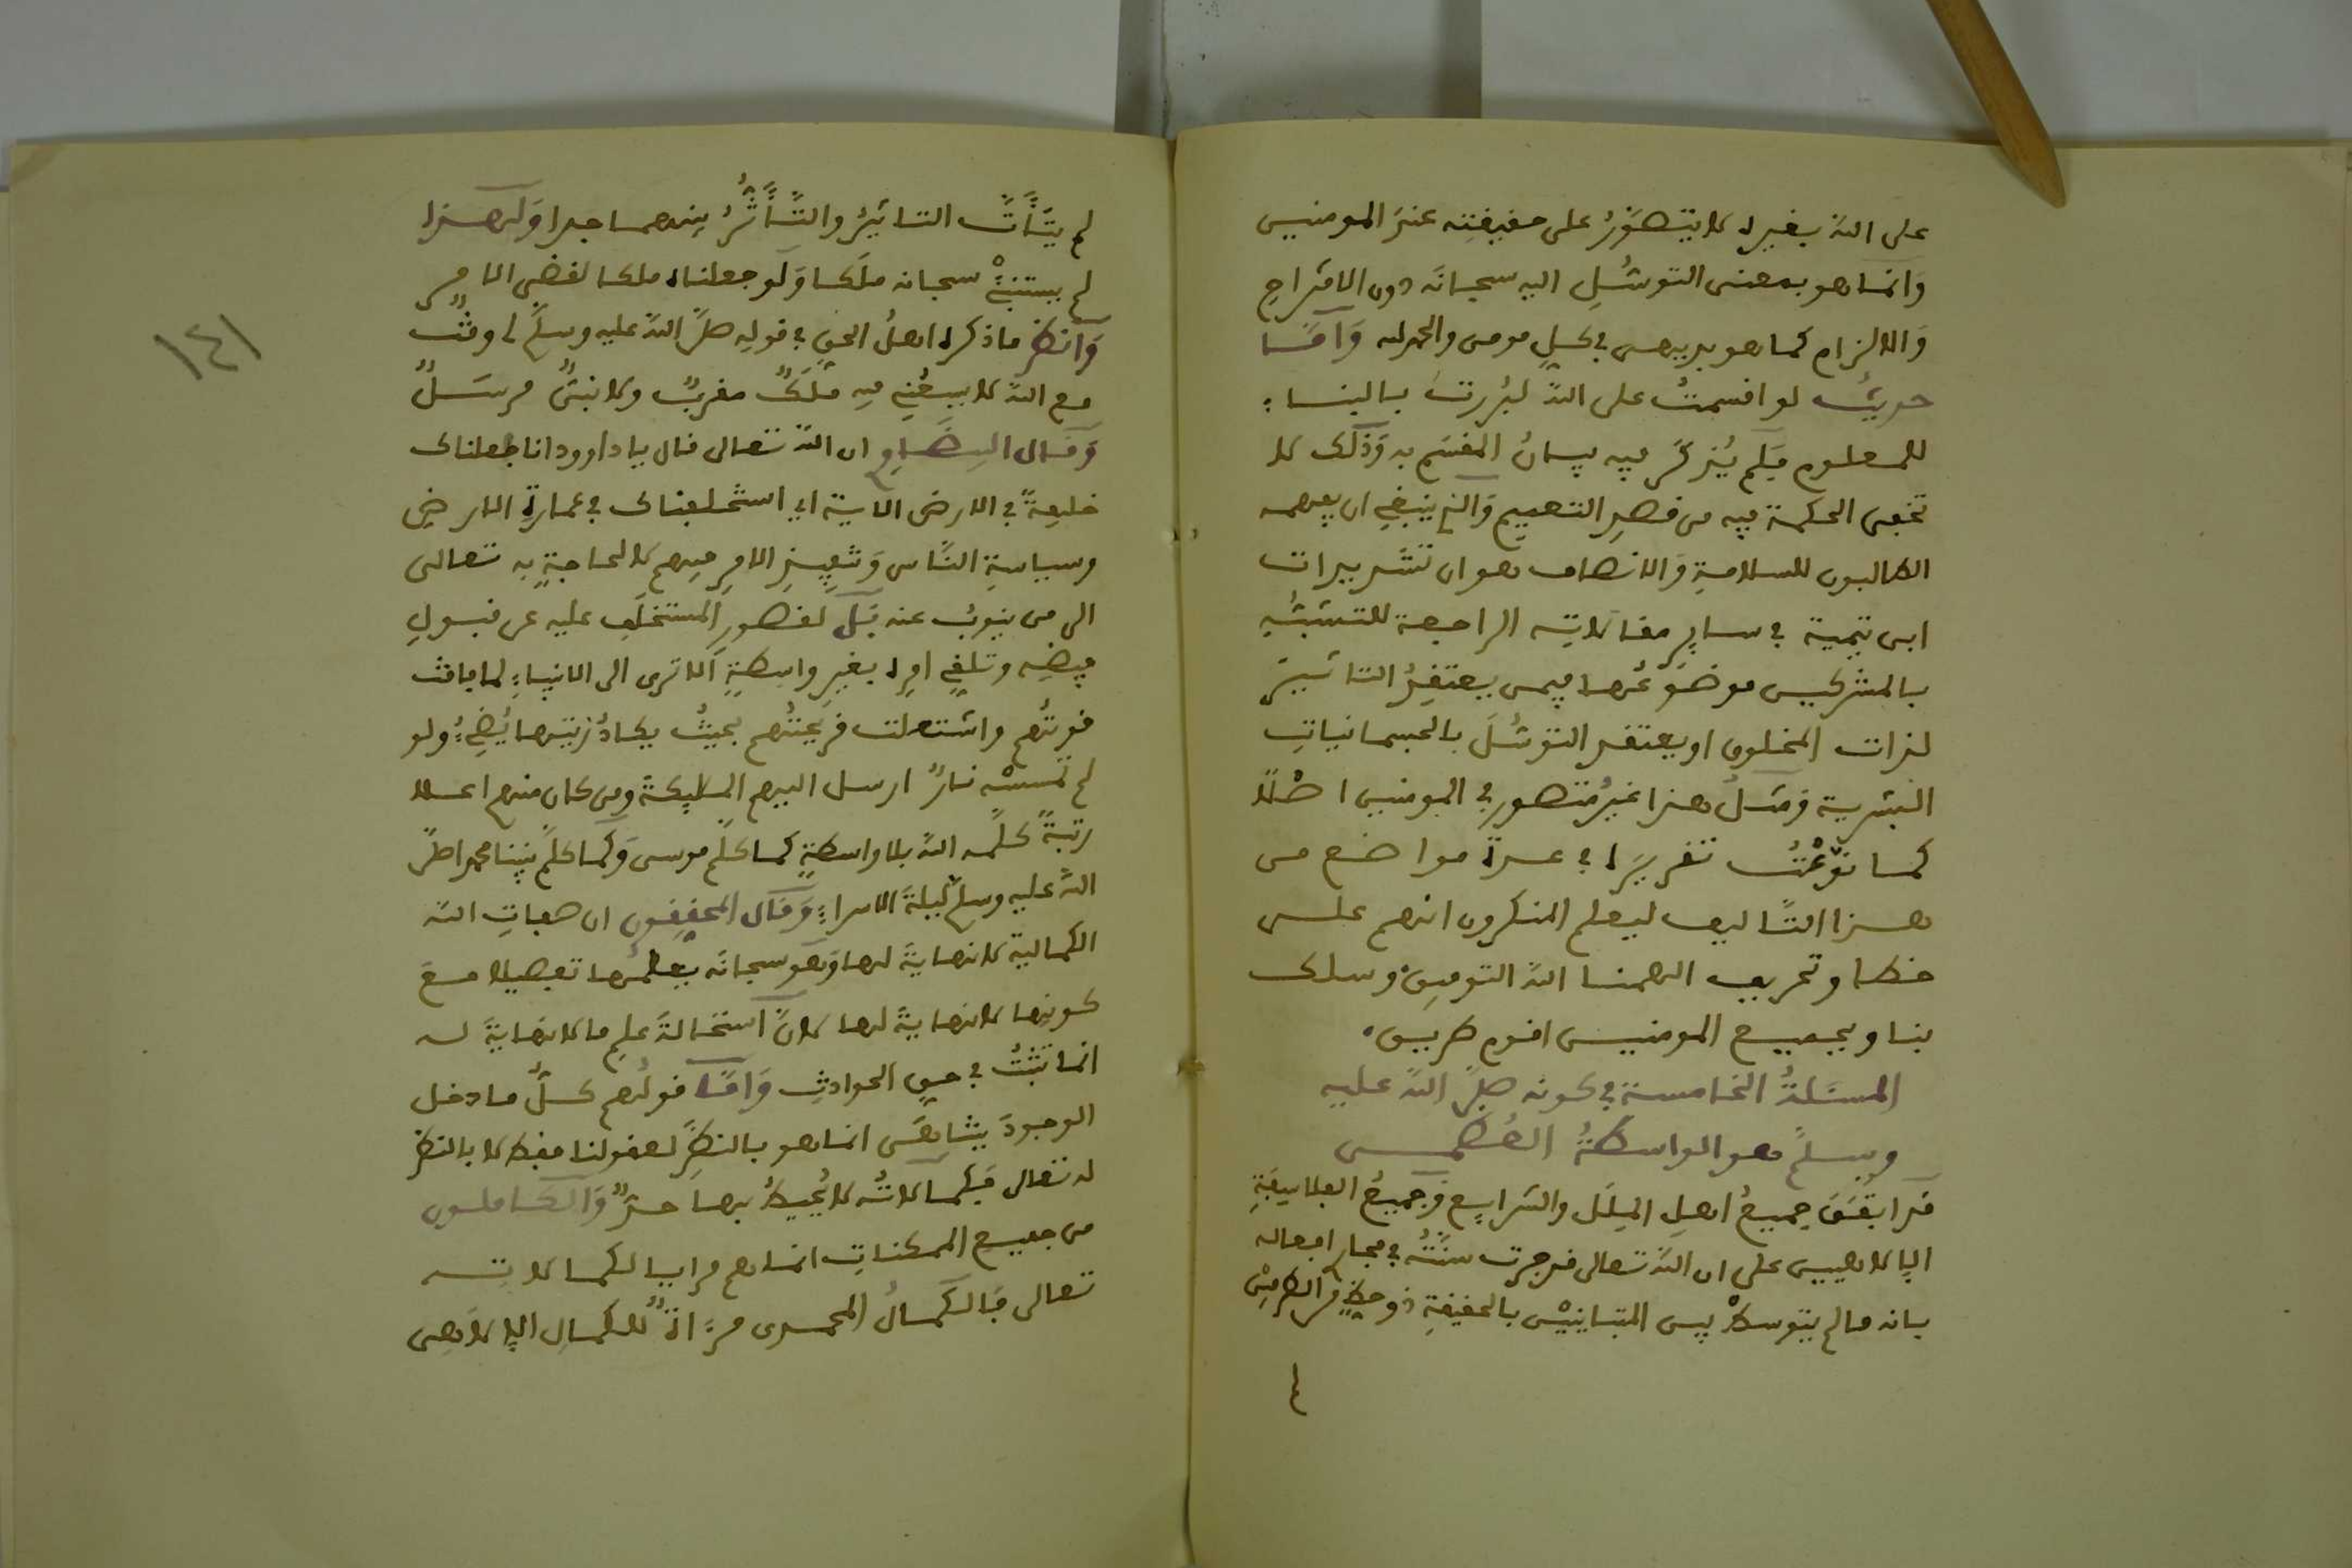 على الله بغيره لا يتصوّر على حقيقته عند المومنين
وَانما هو بمعنى التوسُّلِ اليه سبحانَه دون الاقتراحِ
وَالالزام كما هو بديهى في كلِ مومن والحمد لله وَأمَّا
حديث لو اقسمتُ على الله لبُررتُ بالبناء
للمعلوم فلم يُذكَر فيه بيانُ المقسَمِ به وَذلك لا
تخفى الحكمة فيه من قصدِ التعميم وَالذي ينبغي ان يفهمه
الطالبون للسلامةِ وَالانصاف هو ان تشديدات
ابن تيمية في سايرِ مقالاتِه الراجعة للتشبُّهِ
بالمشركين موضوعُها فيمن يعتقدُ التاثيرَ
لذات المخلوق او يعتقد التوسُّلَ بالجسمانياتِ
البشرية وَمثلُ هذا غيرُ متصور في المومنين اصْلًا
كما نوّعْتُ تقريرَه في عدة مواضع من
هذا التَّاليف ليعلم المنكرون انهم على
خطا وتحريف الهمنا الله التوفيق وسلك
بنا وبجميع المومنين اقوم طريق
المسئلةُ الخامسة في كونه صلى اللهُ عليه
وسلمَ هو الواسطةُ العُظمى
قد اتفَقَ جميعُ اهلِ المِلَل والشرايع وَجميعُ الفلاسفةِ
الإلاهيين على ان اللهَ تعالى قد جرت سنَّتُه في مجار افعاله
بانه ما لم يتوسطْ بين المتباينيْن بالحقيقةِ ذو حظٍّ من الطرفيْن
لم
لم يتَأَتَّ التاثيرُ والتَّأَثُّرُ بينهما جدا وَلهذا
لم يستنبِئْ سبحانه ملَكا وَلو جعلناه ملكا لقضي الامر
وَانظر ما ذكره اهلُ الحقِ في قولِه صلَّى اللهُ عليه وسلمَ لي وقتٌ
مع الله لا يسعُنِي فيه ملَكٌ مقربٌ ولا نبيٌّ مرسَلٌ
وَقال البيضاوي ان اللهَ تعالى قال يا داوود انا جعلناك
خليفةً في الارض الاية اي استخلفناك في عمارةِ الارضِ
وسياسةِ النَّاس وَتنفيذِ الامرِ فيهم لا لحاجةٍ به تعالى
الى من ينوبُ عنه بَل لقصورِ المستخلَفِ عليه عن قبولِ
فيضِه وتلقي امرِه بغيرِ واسطةٍ ألا ترى الى الانبياءِ لما فاقت
قوتُهم واشتعلت قريحتُهم بحيثُ يكادُ زيتها يُضيءُ ولو
لم تمسسْه نارٌ ارسل اليهم الملايكةَ ومن كان منهم اعلا
رتبةً كلَّمه اللهُ بلا واسطةٍ كما كلَّم موسى وَكما كلَّمَ نبيَنا محمدا صلى
اللهُ عليه وسلمَ ليلةَ الاسراءِ وَقال المحققون ان صفاتِ الله
الكمالية لا نهايةَ لها وَهو سبحانَه يعلمُها تفصيلا معَ
كونِها لا نهايةَ لها لانَّ استحالةَ علمِ ما لا نهايةَ له
انما تثبُتُ في حقِ الحوادثِ وَامَّا قولُهم كلُّ ما دخل
الوجودَ يتناهَى انما هو بالنظرِ لعقولنا فقط لا بالنظر
له تعالى فكمالاتُه لا يُحيطُ بها حدٌّ وَالكاملون
من جميعِ الممكناتِ انما هم مرايا لكمالاتِه
تعالى فَالكمالُ المحمدى مرءاةٌ للكمالِ الإلاهِى
١٤١